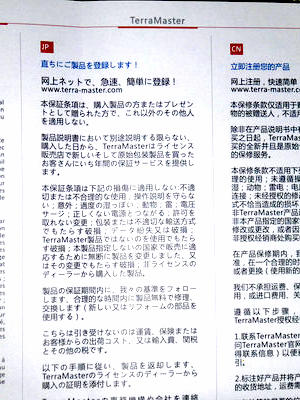 TerraMaster
JP
直ちにご製品を登録します！
网上ネットで、急速、簡単に登録！
www.terra-master.com
本保証条項は、購入製品の方またはプレゼン
トとして贈られた方で、これ以外のその他人
を適用しない。
製品説明書において別途説明する限らない、
購入した日から、TerraMasterはライセンス
販売店で新しいそして原始包装製品を買った
お客さんにいち年間の保証サービスを提供し
ます。
本保証条項は下記の損傷に適用しない:不適
切または不合理的な使用、操作説明を守らな
い; 意外; 過度の湿っぽい; 動物; 雷; 電圧
サージ; 正しくない電源とつながる; 許可を
取れない変更; 包装または不適切な輸送方式
でもたらす破損; データ紛失又は破損;
TerraMaster製品ではないのを使用でもたら
す破損; 本製品指定しないの国家で販売に適
応するために無断に製品を変更しました、又
はその変更でもたらす破損; 非ライセンスの
ディーラーから購入した製品。
製品の保証期間内に、我々の基準をフォロー
します、合理的な時間内に製品無料で修理、
交換します（新しい又はリフォームの部品を
使用する）。
こちらは引き受けないのは運賃、保険または
お客様からの出荷コスト、又は輸入費、関税
とその他の税です。
以下の手順に従い、製品を返却します、
TerraMasterのライセンスのディーラーから
購入の証明を添付します。
CN
立即注册您的产品
网上注册，快速简单
www.terra-master.com
本保修条款仅适用于
物的被赠送人，不适
除非在产品说明书中
买之日起，TerraMast
买的全新并且是原始
的保修服务。
本保修条款不适用下
理的使用；未遵循操
湿；动物；雷电；电
连接；未经授权的修
式不恰当造成的损坏
非TerraMaster产品
非本产品指定的国家
修改或更改，或者因
非授权经销商处购买
在产品保修期内，我
准，在一个合理的时
或者更换（使用新的
我们不承担运费、保
用，或进口费用、关
遵循以下步骤，
TerraMaster授权经
1.联系TerraMaster
问TerraMaster官网
得联系信息）以便
引。
2.标注好产品并将产
的收货地址，运费需